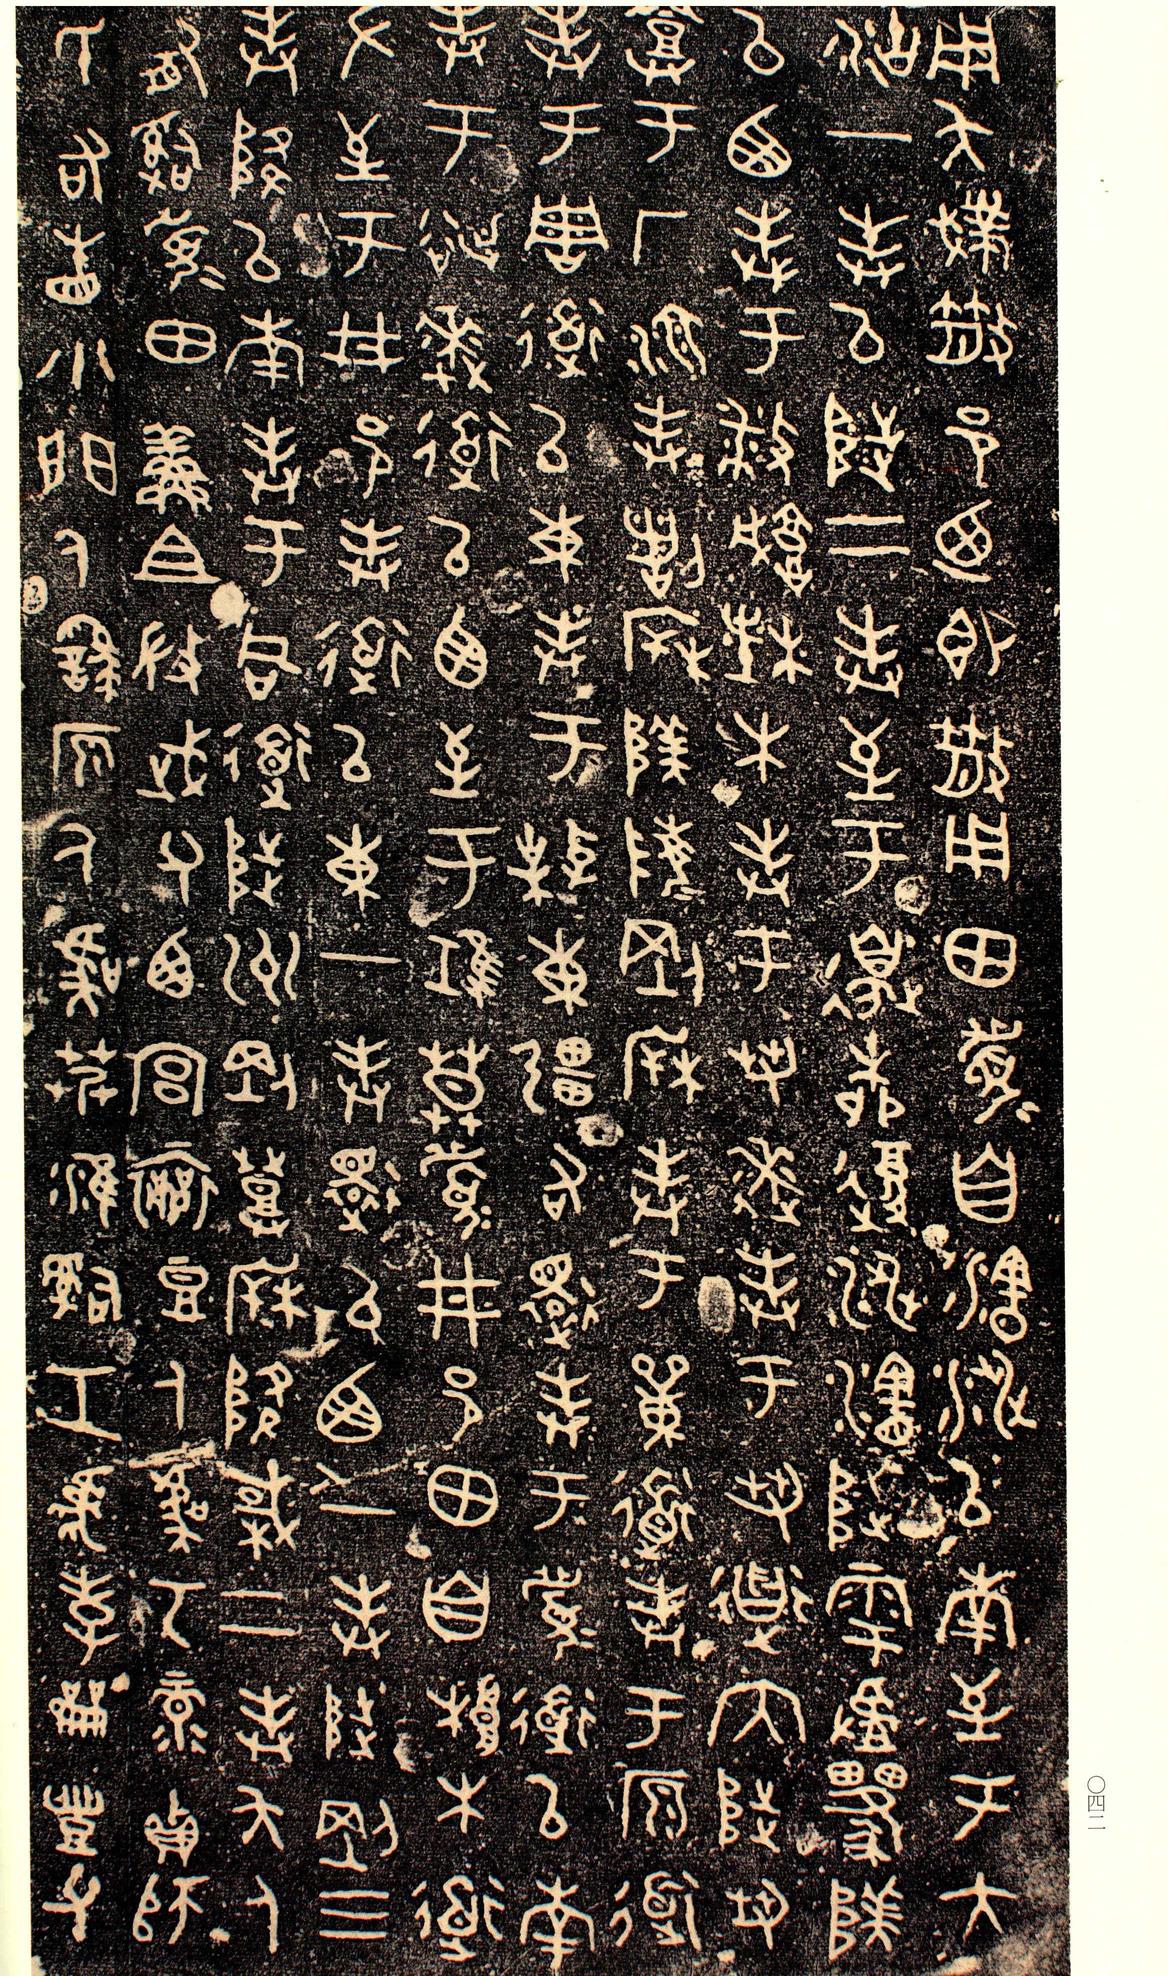 用夨撲散邑廼即散用田眉自瀗涉以南至于大
沽一封以陟二封至于邊柳復涉瀗陟雩陝
以西封于城楮木封于芻逨封于芻道内陟芻
登于厂湶封陝陵剛封于道封于原道
封于周道以東封于東疆右還封于眉道以南
封于逨道以西至于莫眉井邑田自根木道
左至于井邑封道以東一封還以西一封陟剛三
封降以南封于同道陟州剛登降棫二封夨人
有司眉田鮮且微武父西宮襄豆人虞丂彔貞師
氏右眚小門人繇原人虞艿淮司工虎孝龠豐父
〇四二